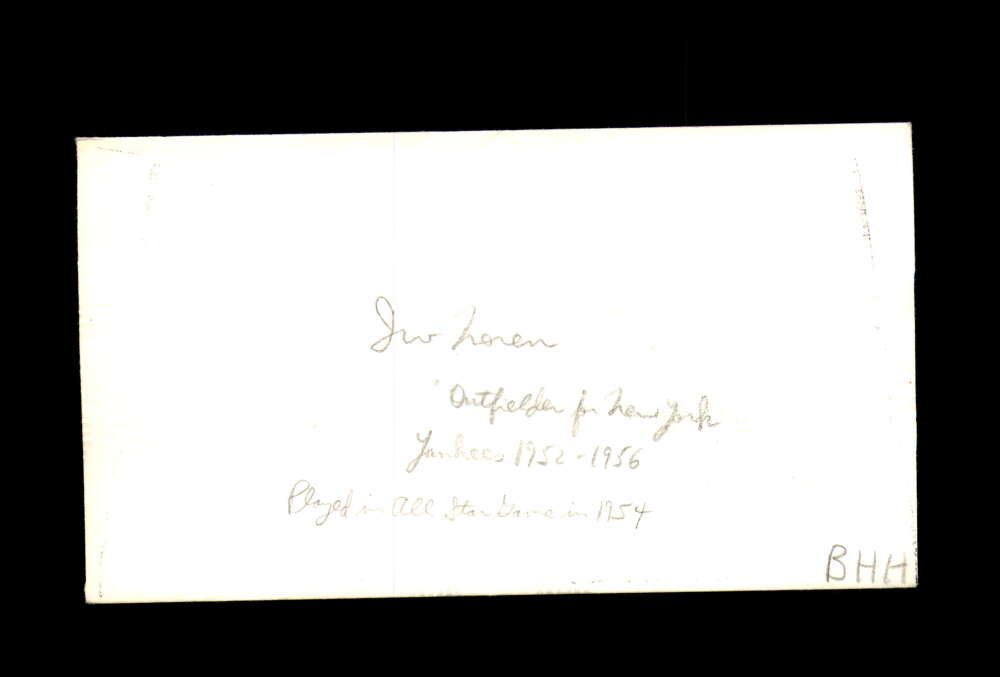 Irv Noren
Outfielder for New York
Yankees 1952-1956
Played in All Star Game in 1954
BHH